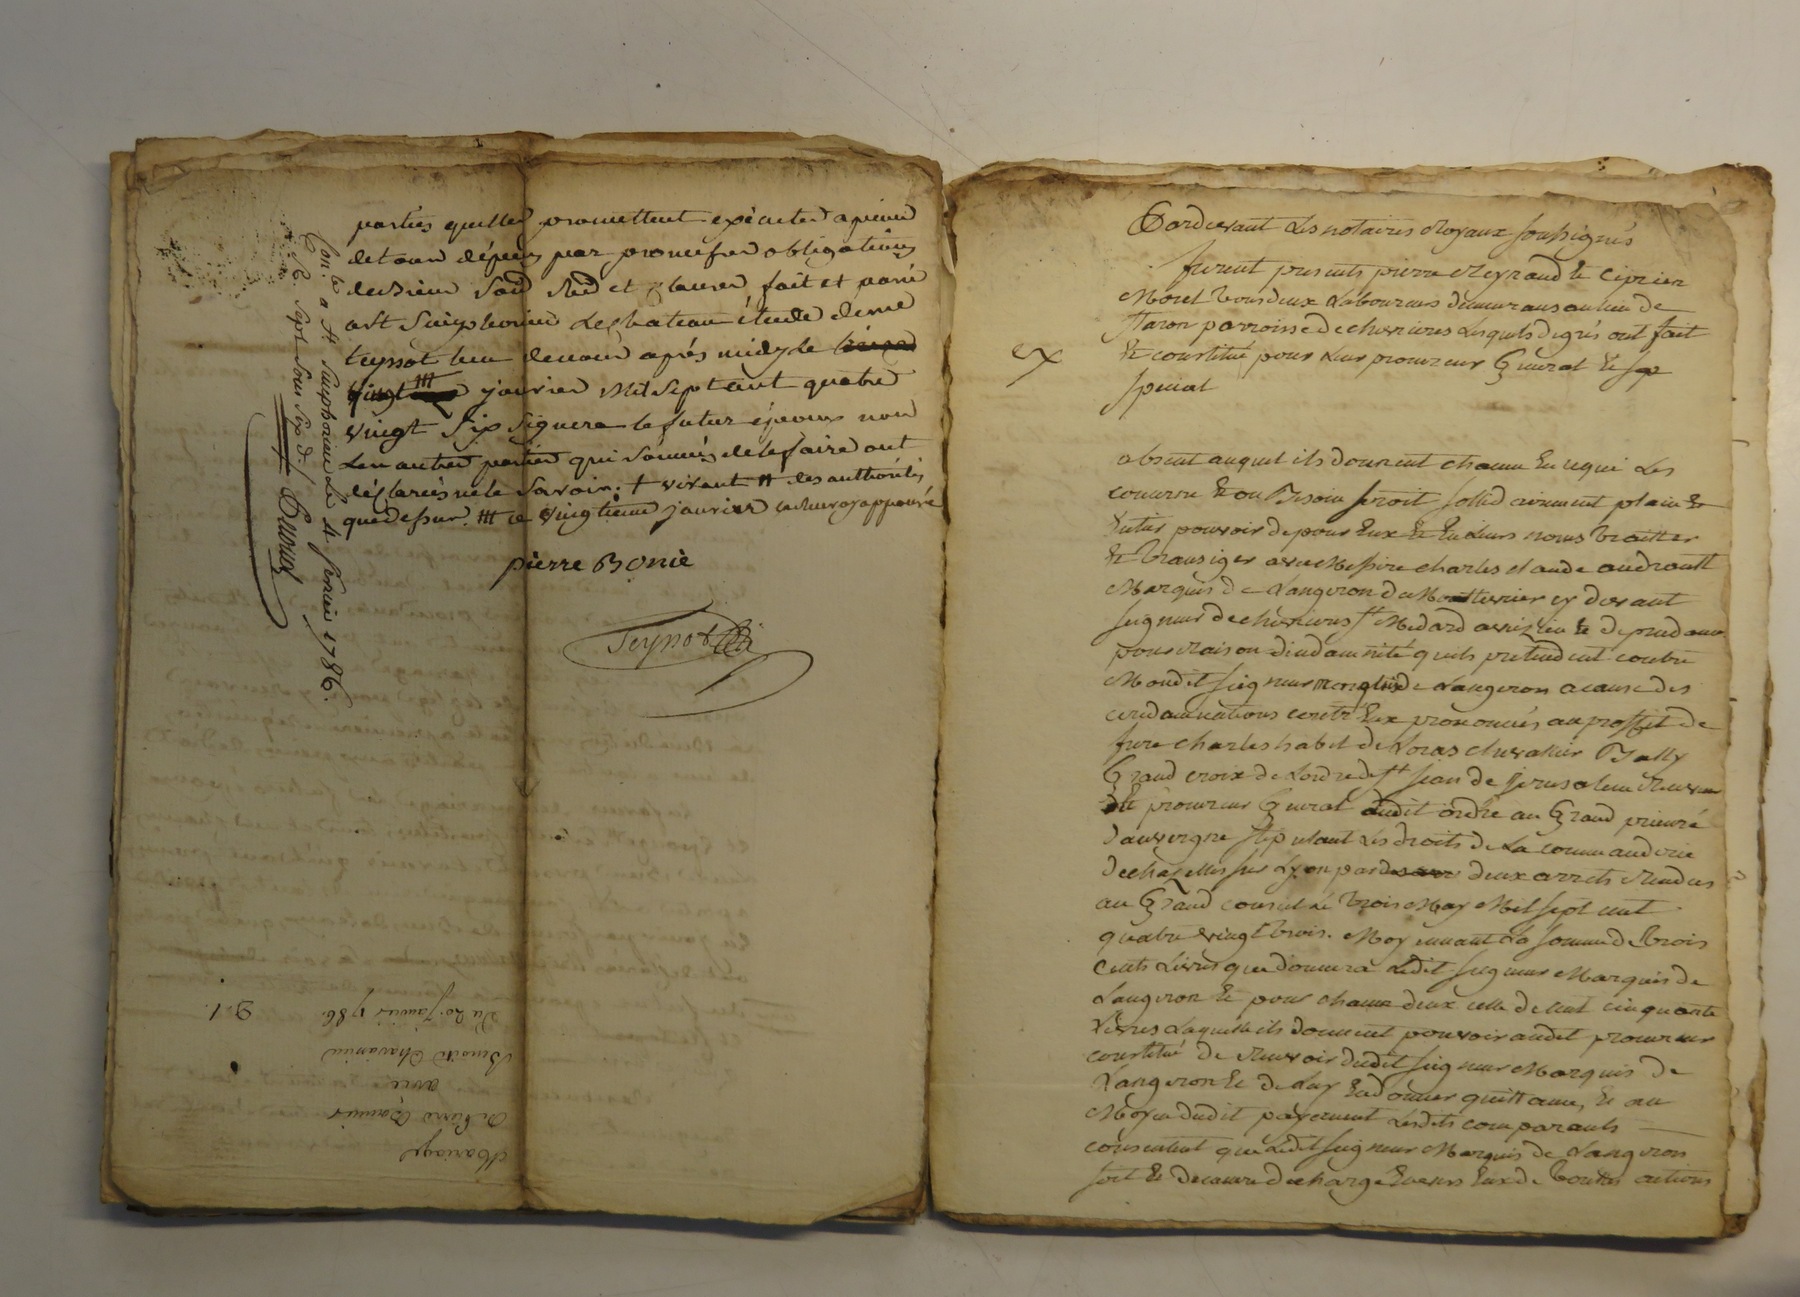 parties quelles promettent exécuter a peine
de tous dépens par promesses obligations
de biens Soumd Rend et clauses fait et passé
a St Simphorien le chateau étude de me
teyssot lieu devant après midy le
vingt ttt janvier Mil Sept cent quatre
vingt Six Signera le futur époux non
les autres parties qui Sommés de le faire ont
déclarés ne le Savoir. † vivant # des authorités
que dessus. ttt ce vingtieme janvier approuvé
pierre Bonié
Teyssot
Con. lé a St. Simphorien Le 4 fevrier 1786.
R. Sept Sous Six d.
Mariage
De Pierre Bonnier
avec
Benoite Chavanieu
Du 20. Janvier 1786.
Pardevant Les notaires Royaux soussignés
furent presents pierre Reyraud & Ciprien
Morel tous deux Laboureurs demeurans au lieu de
parroisse de chevrieres Lesquels de gré ont fait
& constitué pour Leur procureur General & sp
special
ex
absent auquel ils donnent charge En ce qui Les
concerne & ou Besoin seroit plain &
Entier pouvoir de pour Eux & En Leurs noms traitter
& transiger avec Messire charles claude andrault
Marquis de Langeron De Maulevrier cy devant
seigneur de chevrieres St Medard aveizieu &
pour raison dindamnité quils pretendent contre
Mondit seigneur marquis de Langeron a cause des
condamnations contr'Eux prononcées au proffit de
frere Charles habel de Loras chevallier Bally
Grand croix de Lordre de St jean de jerusalem Receveur
& procureur General dudit ordre au Grand prieuré
dauvergne stipulant Les droits de La commanderie
de chazelles sur Lyon par deux arrets Rendus
au Grand conseil Le trois May Mil sept cent
quatre vingt trois. Moyennant La somme de trois
cents Livres que donnera Ledit seigneur Marquis de
Langeron & pour chacun deux celle de cent cinquante
Livres Laquelle ils donnent pouvoir audit procureur
constitué de Recevoir dudit seigneur Marquis de
Langeron & de Luy En donner quittance, & au
Moyen dudit payement Lesdits comparants
consentent que Ledit seigneur Marquis de Langeron
soit & demeure dechargé Envers Eux de toutes actions